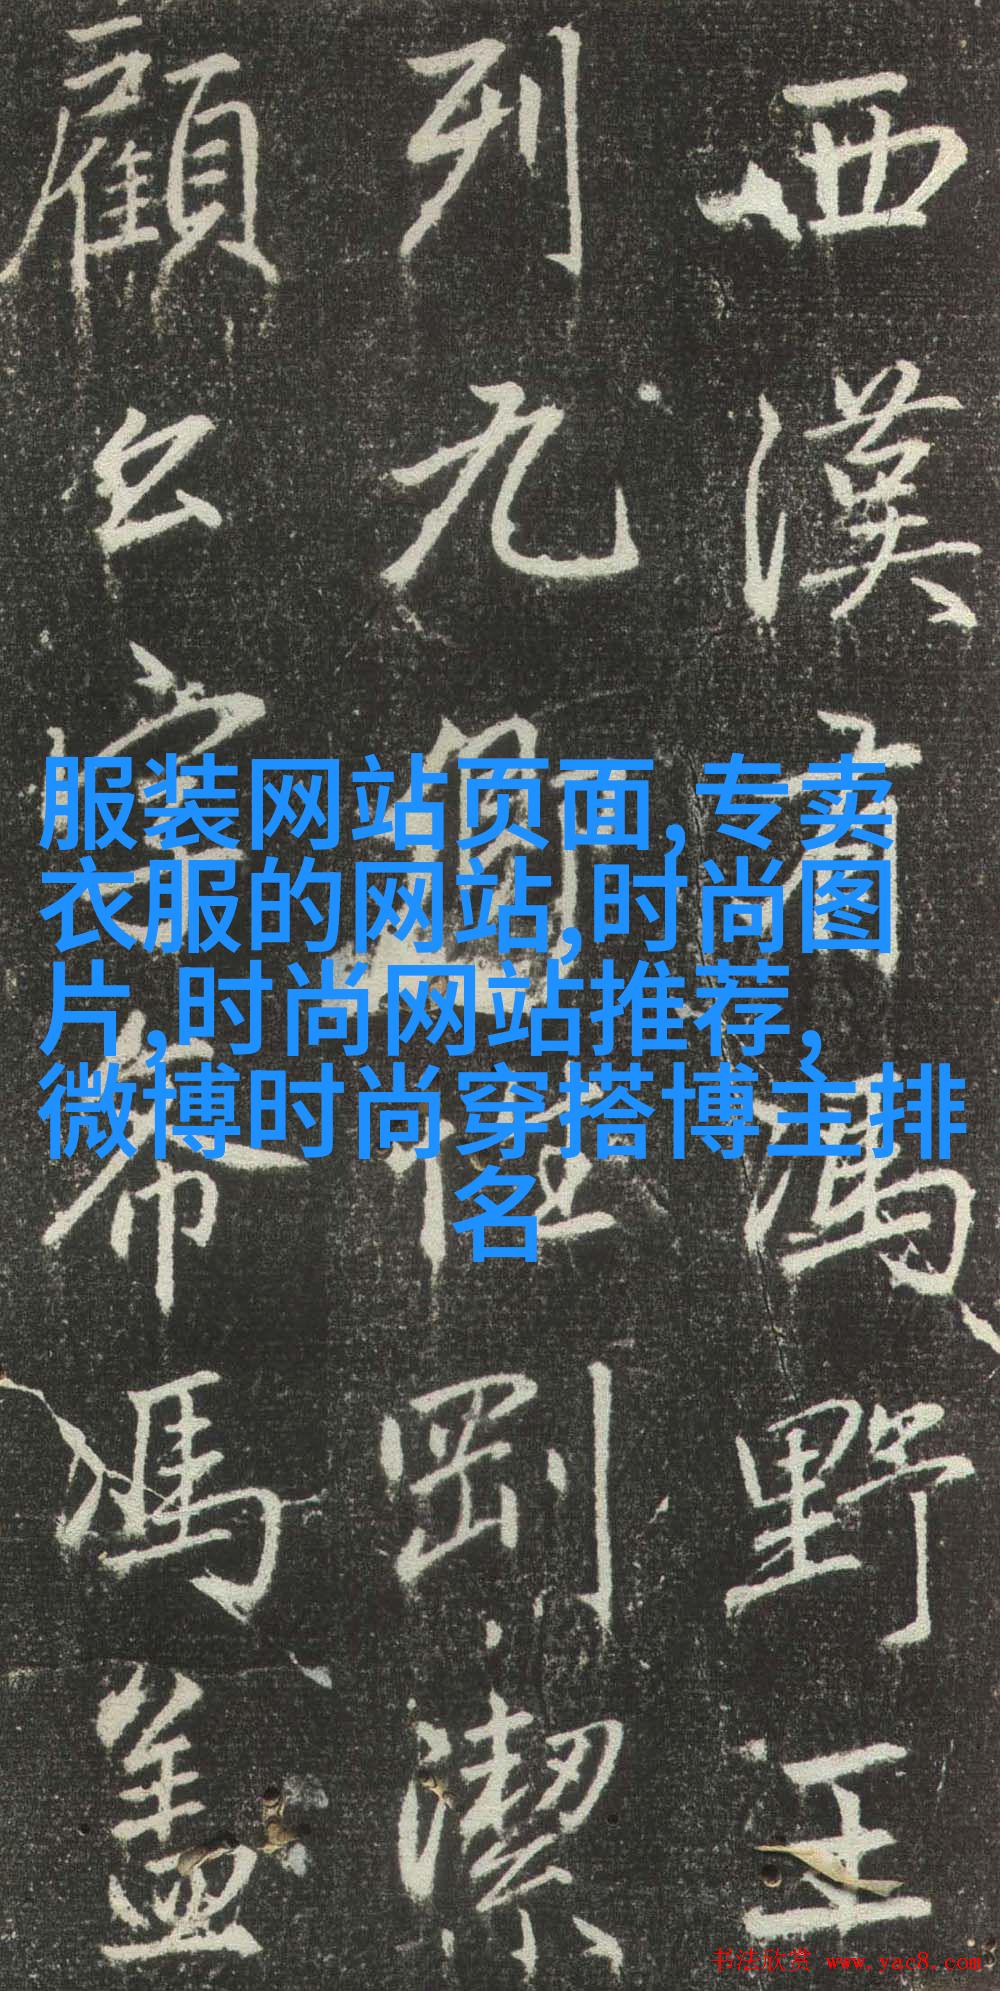 西漢有馮野王
列九剛潔
顧公希馮蓋
服装网站页面,专卖
衣服的网站,时尚图
片,时尚网站推荐,
微博时尚穿搭博主排
名
书法欣赏 www.yac8.com